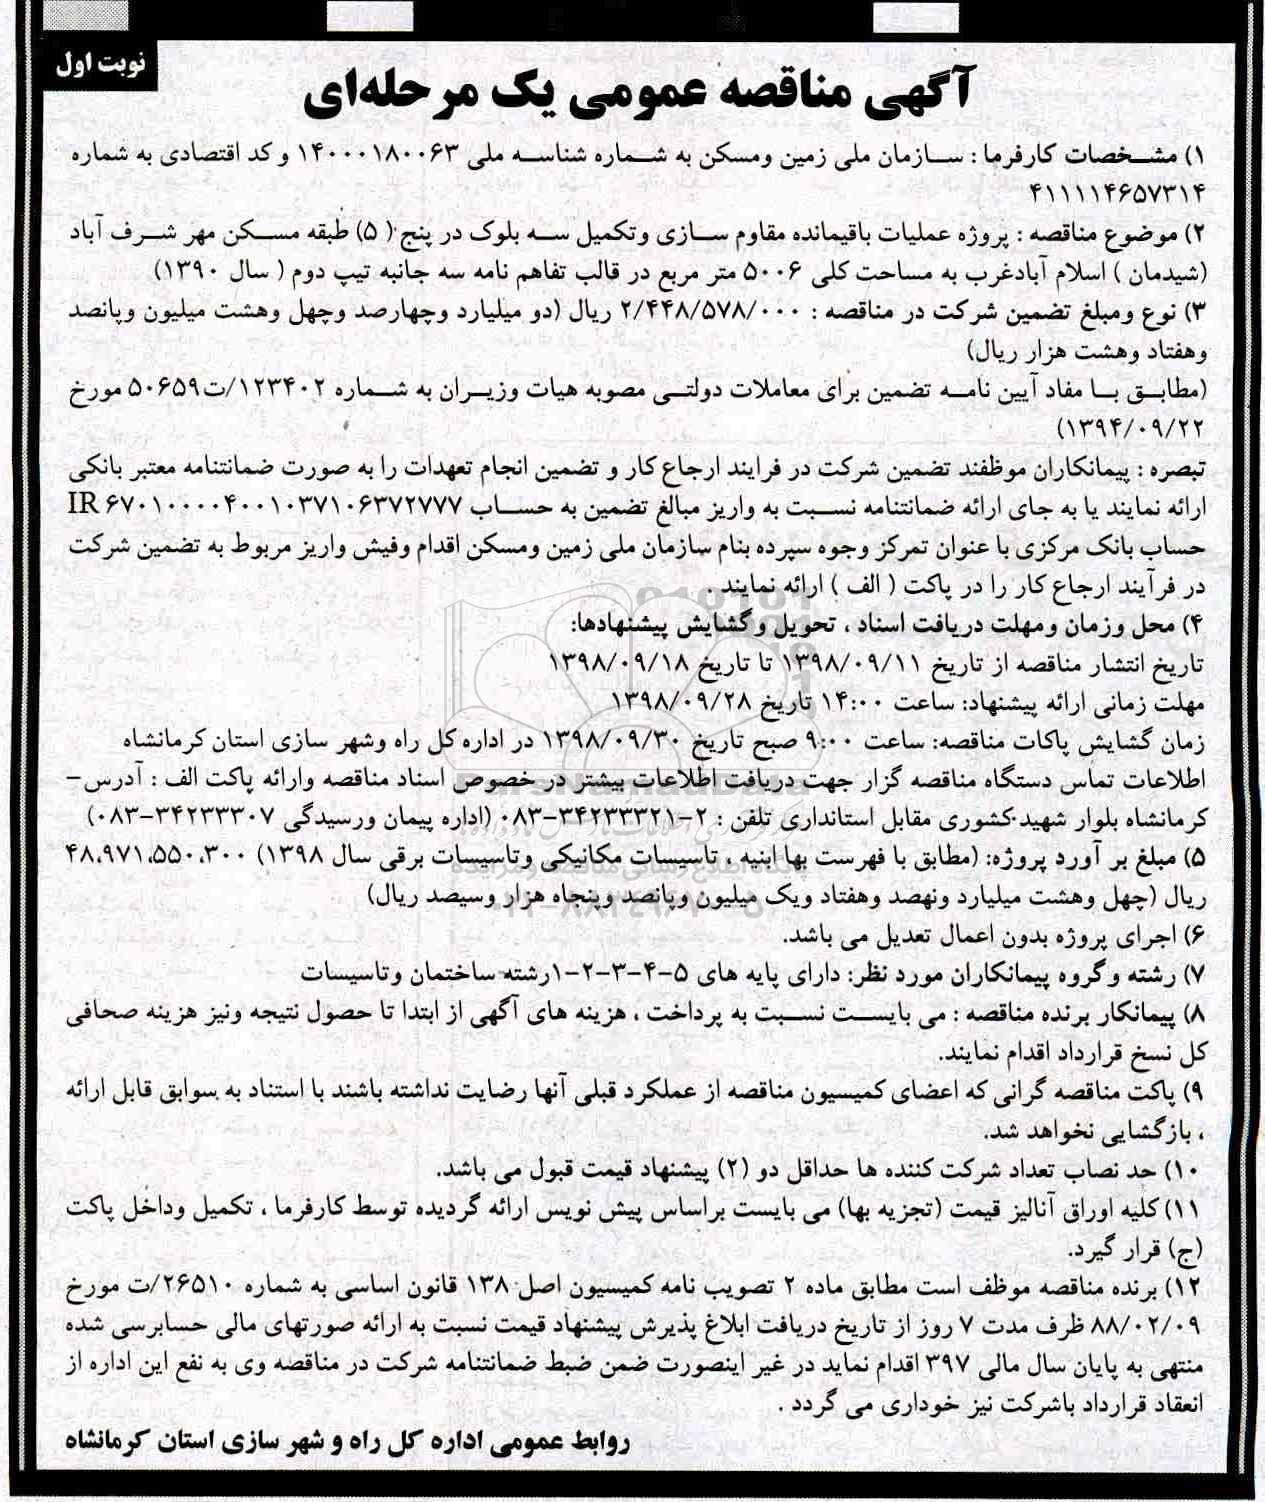 نوبت اول
آگهی مناقصه عمومی یک مرحله‌ای
۱) مشـخصات کارفرما : سـازمان ملی زمین ومسکن به شـماره شناسـه ملی ۱۴۰۰۰۱۸۰۰۶۳ و کد اقتصادی به شماره
۴۱۱۱۱۴۶۵۷۳۱۴
۲) موضوع مناقصه : پروژه عملیات باقیمانده مقاوم سـازی وتکمیل سـه بلوک در پنج ( ۵) طبقه مسـکن مهر شـرف آباد
(شیدمان ) اسلام آبادغرب به مساحت کلی ۵۰۰۶ متر مربع در قالب تفاهم نامه سه جانبه تیپ دوم ( سال ۱۳۹۰)
۳) نوع ومبلغ تضمین شرکت در مناقصه : ۲/۴۴۸/۵۷۸/۰۰۰ ریال (دو میلیارد وچهارصد وچهل وهشت میلیون وپانصد
وهفتاد وهشت هزار ریال)
(مطابـق بـا مفاد آیین نامـه تضمین برای معاملات دولتـی مصوبه هیات وزیـران به شـماره ۱۲۳۴۰۲/ت۵۰۶۵۹ مورخ
۱۳۹۴/۰۹/۲۲)
تبصره : پیمانکاران موظفند تضمین شرکت در فرایند ارجاع کار و تضمین انجام تعهدات را به صورت ضمانتنامه معتبر بانکی
ارائه نمایند یا به جای ارائه ضمانتنامه نسـبت به واریز مبالغ تضمین به حسـاب IR ۶۷۰۱۰۰۰۰۴۰۰۱۰۳۷۱۰۶۳۷۲۷۷۷
حساب بانک مرکزی با عنوان تمرکز وجوه سپرده بنام سازمان ملی زمین ومسکن اقدام وفیش واریز مربوط به تضمین شرکت
در فرآیند ارجاع کار را در پاکت ( الف ) ارائه نمایند .
۴) محل وزمان ومهلت دریافت اسناد ، تحویل وگشایش پیشنهادها:
تاریخ انتشار مناقصه از تاریخ ۱۳۹۸/۰۹/۱۱ تا تاریخ ۱۳۹۸/۰۹/۱۸
مهلت زمانی ارائه پیشنهاد: ساعت ۱۴:۰۰ تاریخ ۱۳۹۸/۰۹/۲۸
زمان گشایش پاکات مناقصه: ساعت ۹:۰۰ صبح تاریخ ۱۳۹۸/۰۹/۳۰ در اداره کل راه وشهر سازی استان کرمانشاه
اطلاعات تماس دستگاه مناقصه گزار جهت دریافت اطلاعات بیشتر در خصوص اسناد مناقصه وارائه پاکت الف : آدرس–
کرمانشاه بلوار شهید کشوری مقابل استانداری تلفن : ۲–۳۴۲۳۳۳۲۱–۰۸۳ (اداره پیمان ورسیدگی ۳۴۲۳۳۳۰۷–۰۸۳)
۵) مبلغ بر آورد پروژه: (مطابق با فهرست بها ابنیه ، تاسیسات مکانیکی وتاسیسات برقی سال ۱۳۹۸) ۴۸،۹۷۱،۵۵۰،۳۰۰
ریال (چهل وهشت میلیارد ونهصد وهفتاد ویک میلیون وپانصد وپنجاه هزار وسیصد ریال)
۶) اجرای پروژه بدون اعمال تعدیل می باشد.
۷) رشته وگروه پیمانکاران مورد نظر: دارای پایه های ۵–۴–۳–۲–۱رشته ساختمان وتاسیسات
۸) پیمانکار برنده مناقصه : می بایسـت نسـبت به پرداخت ، هزینه های آگهی از ابتدا تا حصول نتیجه ونیز هزینه صحافی
کل نسخ قرارداد اقدام نمایند.
۹) پاکت مناقصه گرانی که اعضای کمیسیون مناقصه از عملکرد قبلی آنها رضایت نداشته باشند با استناد به سوابق قابل ارائه
، بازگشایی نخواهد شد.
۱۰) حد نصاب تعداد شرکت کننده ها حداقل دو (۲) پیشنهاد قیمت قبول می باشد.
۱۱) کلیه اوراق آنالیز قیمت (تجزیه بها) می بایست براساس پیش نویس ارائه گردیده توسط کارفرما ، تکمیل وداخل پاکت
(ج) قرار گیرد.
۱۲) برنده مناقصه موظف است مطابق ماده ۲ تصویب نامه کمیسیون اصل ۱۳۸ قانون اساسی به شماره ۲۶۵۱۰/ت مورخ
۸۸/۰۲/۰۹ ظرف مدت ۷ روز از تاریخ دریافت ابلاغ پذیرش پیشنهاد قیمت نسبت به ارائه صورتهای مالی حسابرسی شده
منتهی به پایان سال مالی ۳۹۷ اقدام نماید در غیر اینصورت ضمن ضبط ضمانتنامه شرکت در مناقصه وی به نفع این اداره از
انعقاد قرارداد باشرکت نیز خوداری می گردد .
روابط عمومی اداره کل راه و شهر سازی استان کرمانشاه